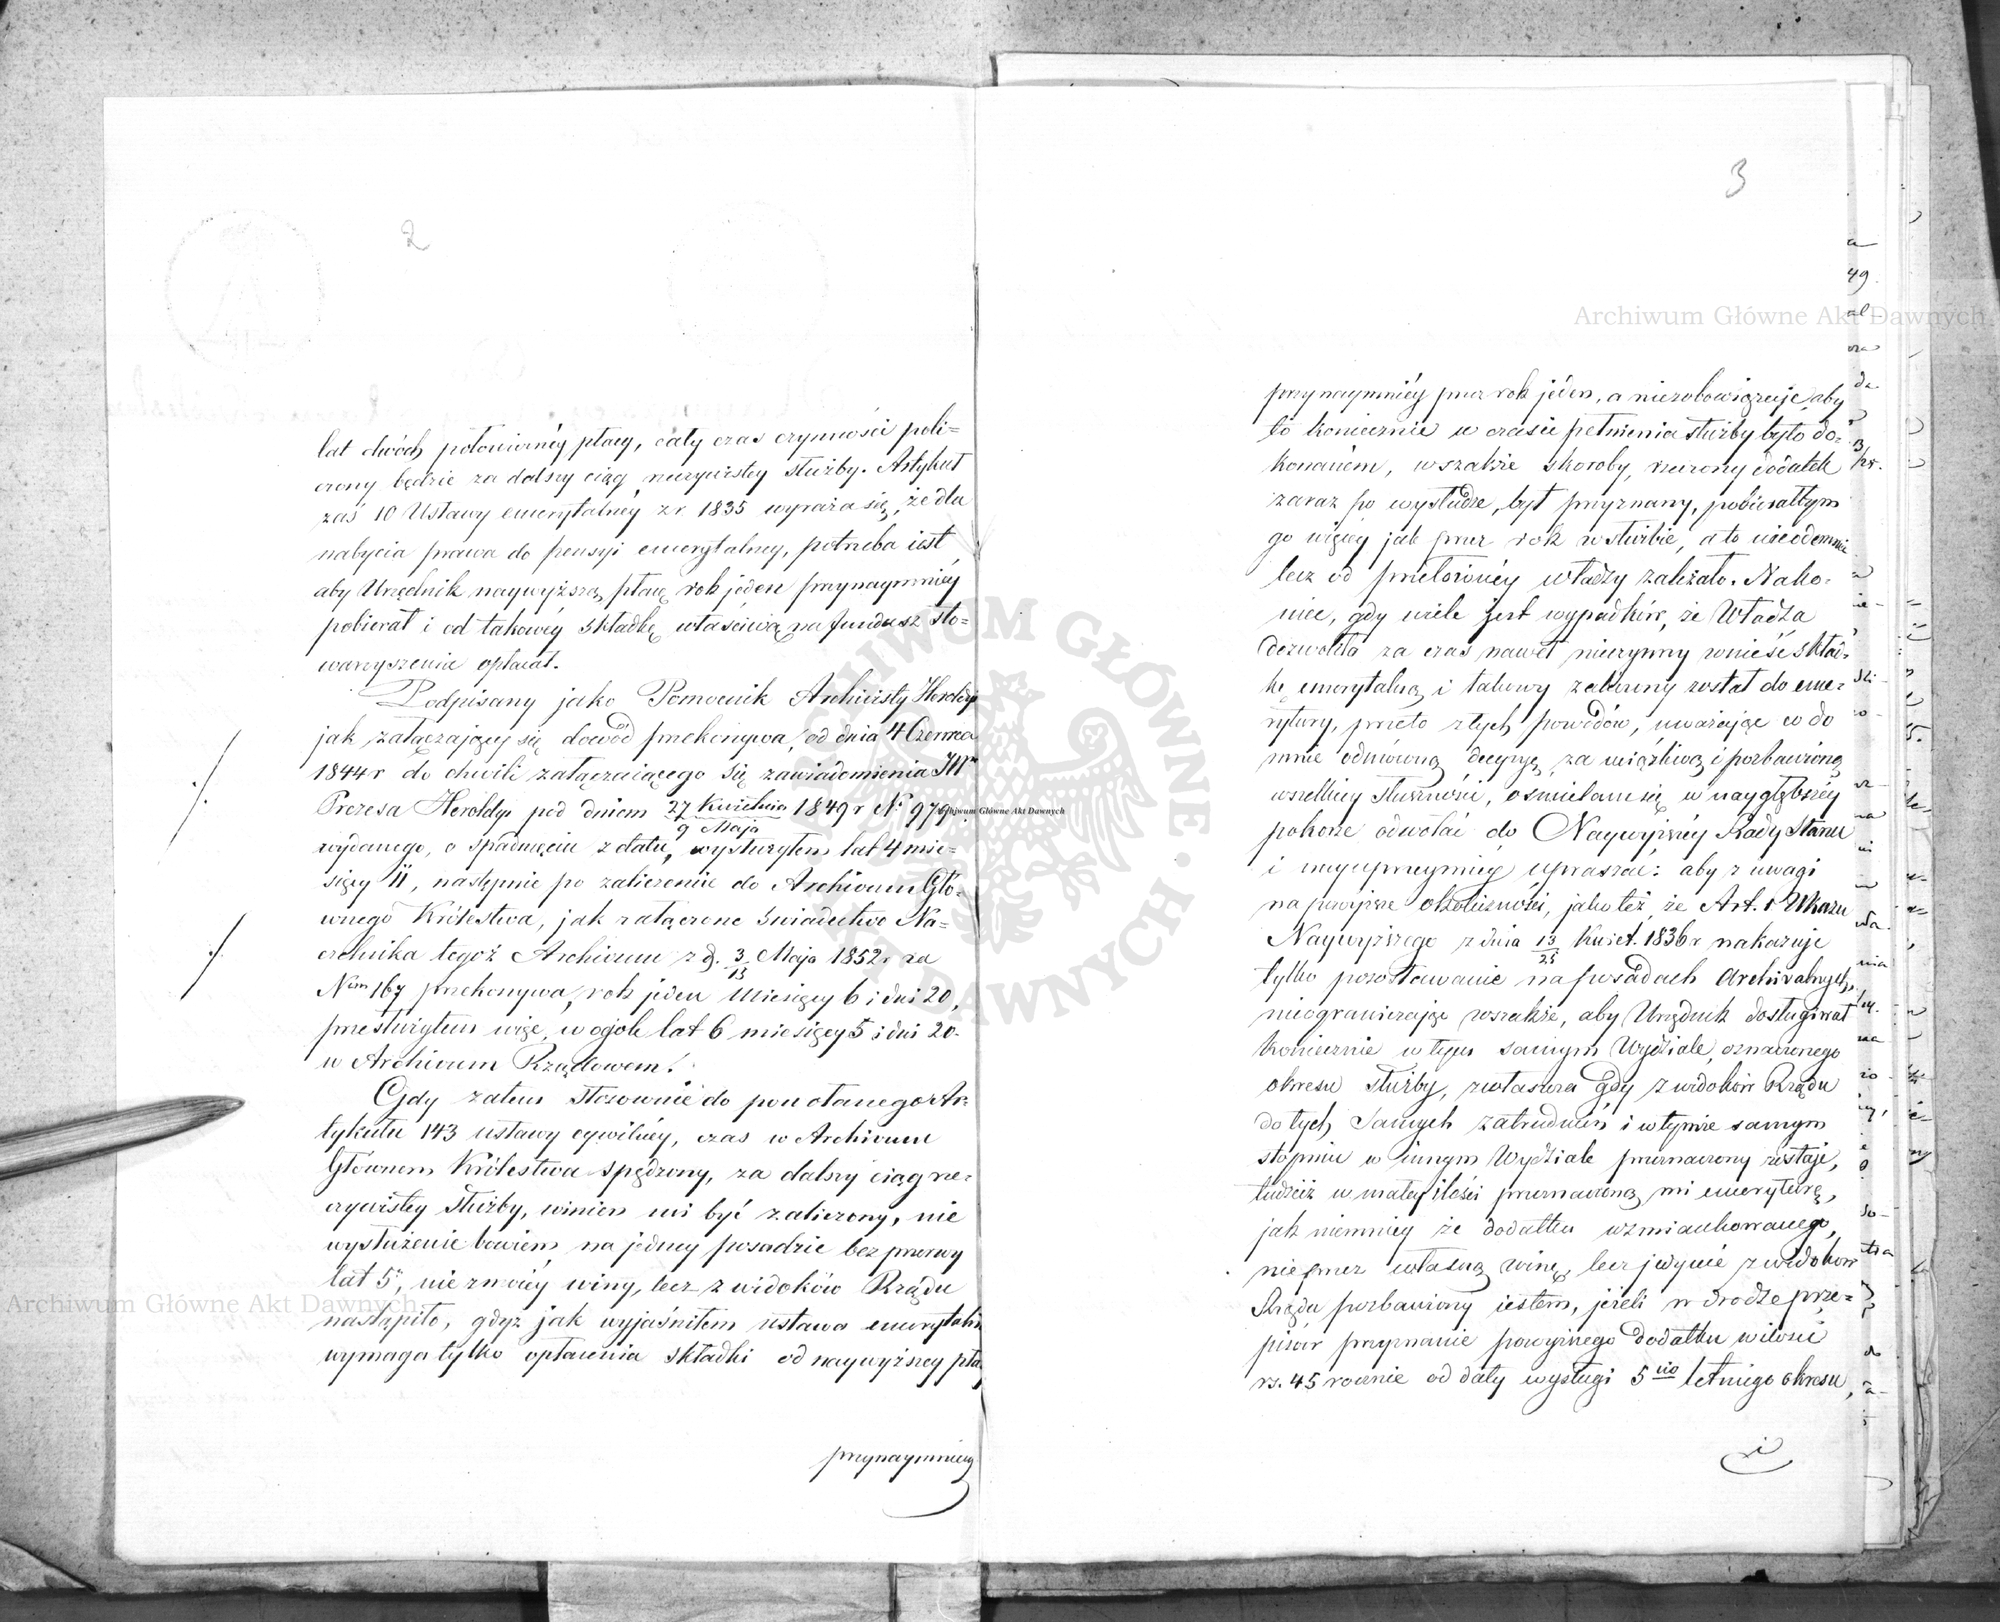 2
lat dwóch połowicznéy płacy, cały czas czynności poli=
czony będzie za dalszy ciąg rzeczywistey służby. Artykuł
zaś 10 Ustawy emerytalnéy z r. 1835 wyraża się, że dla
nabycia prawa do pensyi emerytalney, potrzeba iest
aby Urzędnik naywyższą płacę rok jeden przynaymniéy
pobierał i od takowéy składkę właściwą na fundusz sto=
warzyszenia opłacał.
Podpisany jako Pomocnik Archiwisty Heroldyi
jak załączający się dowód przekonywa, od dnia 4 Czerwca
1844 r do chwili załączaiącego się zawiadomienia JW
Prezesa Heroldyi pod dniem 27 Kwietnia / 9 Maja 1849 r No 979
wydanego, o spadnięciu z etatu, wysłużyłem lat 4 mie=
sięcy 11, następnie po zaliczeniu do Archivum Głó=
wnego Królestwa, jak załączone świadectwo Na=
czelnika tegoż Archivum z d. 3/15 Maja 1852 r za
Num 167 przekonywa, rok jeden Miesięcy 6 i dni 20,
przesłużyłem więc w ogóle lat 6 miesięcy 5 i dni 20.
w Archivum Rządowem.
Gdy zatem stosownie do powołanego Ar=
tykułu 143 ustawy cywilnéy, czas w Archivum
Głównem Królestwa spędzony, za dalszy ciąg rze=
czywistey służby, winien mi być zaliczony, nie
wysłużenie bowiem na jedney posadzie bez przerwy
lat 5, nie z moiéy winy, lecz z widoków Rządu
nastąpiło, gdyż jak wyjaśniłem ustawa emerytaln
wymaga tylko opłacenia składki od naywyższey pła
przynaymniey
3
przynaymniéy przez rok jéden, a niezobowiązuje, aby
to koniecznie w czasie pełnienia służby było do=
konaném, wszakże skoroby, rzeczony dodatek
zaraz po wysłudze, był przyznany, pobierałbym
go więcey jak przez rok w służbie, a to nieodemnie
lecz od przełożonéy władzy zależało. Nako=
niec, gdy wiele jest wypadków, że Władza
dozwoliła za czas nawet nieczynny wnieść skład=
kę emerytalną i takowy zaliczony został do eme=
rytury, przeto z tych powodów, uważając co do
mnie odmówną decyzyę, za uciążliwą i pozbawioną
wszelkiey słuszności, ośmielam się w naygłębszéy
pokorze odwołać do Naywyższéy Rady Stanu
i nayuprzeymiey upraszać: aby z uwagi
na powyższe okoliczności, jako też, że Art. 1 Ukazu
Naywyższego z dnia 13/25 Kwiet. 1836 r nakazuje
tylko pozostawanie na posadach Archivalnych,
nieograniczając wszakże, aby Urzędnik dosługiwał
koniecznie w tym samym Wydziale, oznaczonego
okresu służby, zwłaszcza gdy z widoków Rządu
do tych samych zatrudnień i w tymże samym
stopniu w innym Wydziale przeznaczony zostaje,
tudzież w małey ilości przeznaczoną mi emeryturę,
jak niemniey że dodatku wzmiankowanego,
nieprzez własną winę, lecz jedynie z widoków
Rządu pozbawiony iestem, jeżeli w drodze prze=
pisów przyznanie powyższego dodatku w ilości
rs. 45 rocznie od daty wysługi 5cio letniego okresu,
i
Archiwum Główne Akt Dawnych
Archiwum Główne Akt Dawnych
Archiwum Główne Akt Dawnych
ARCHIWUM GŁÓWNE AKT DAWNYCH